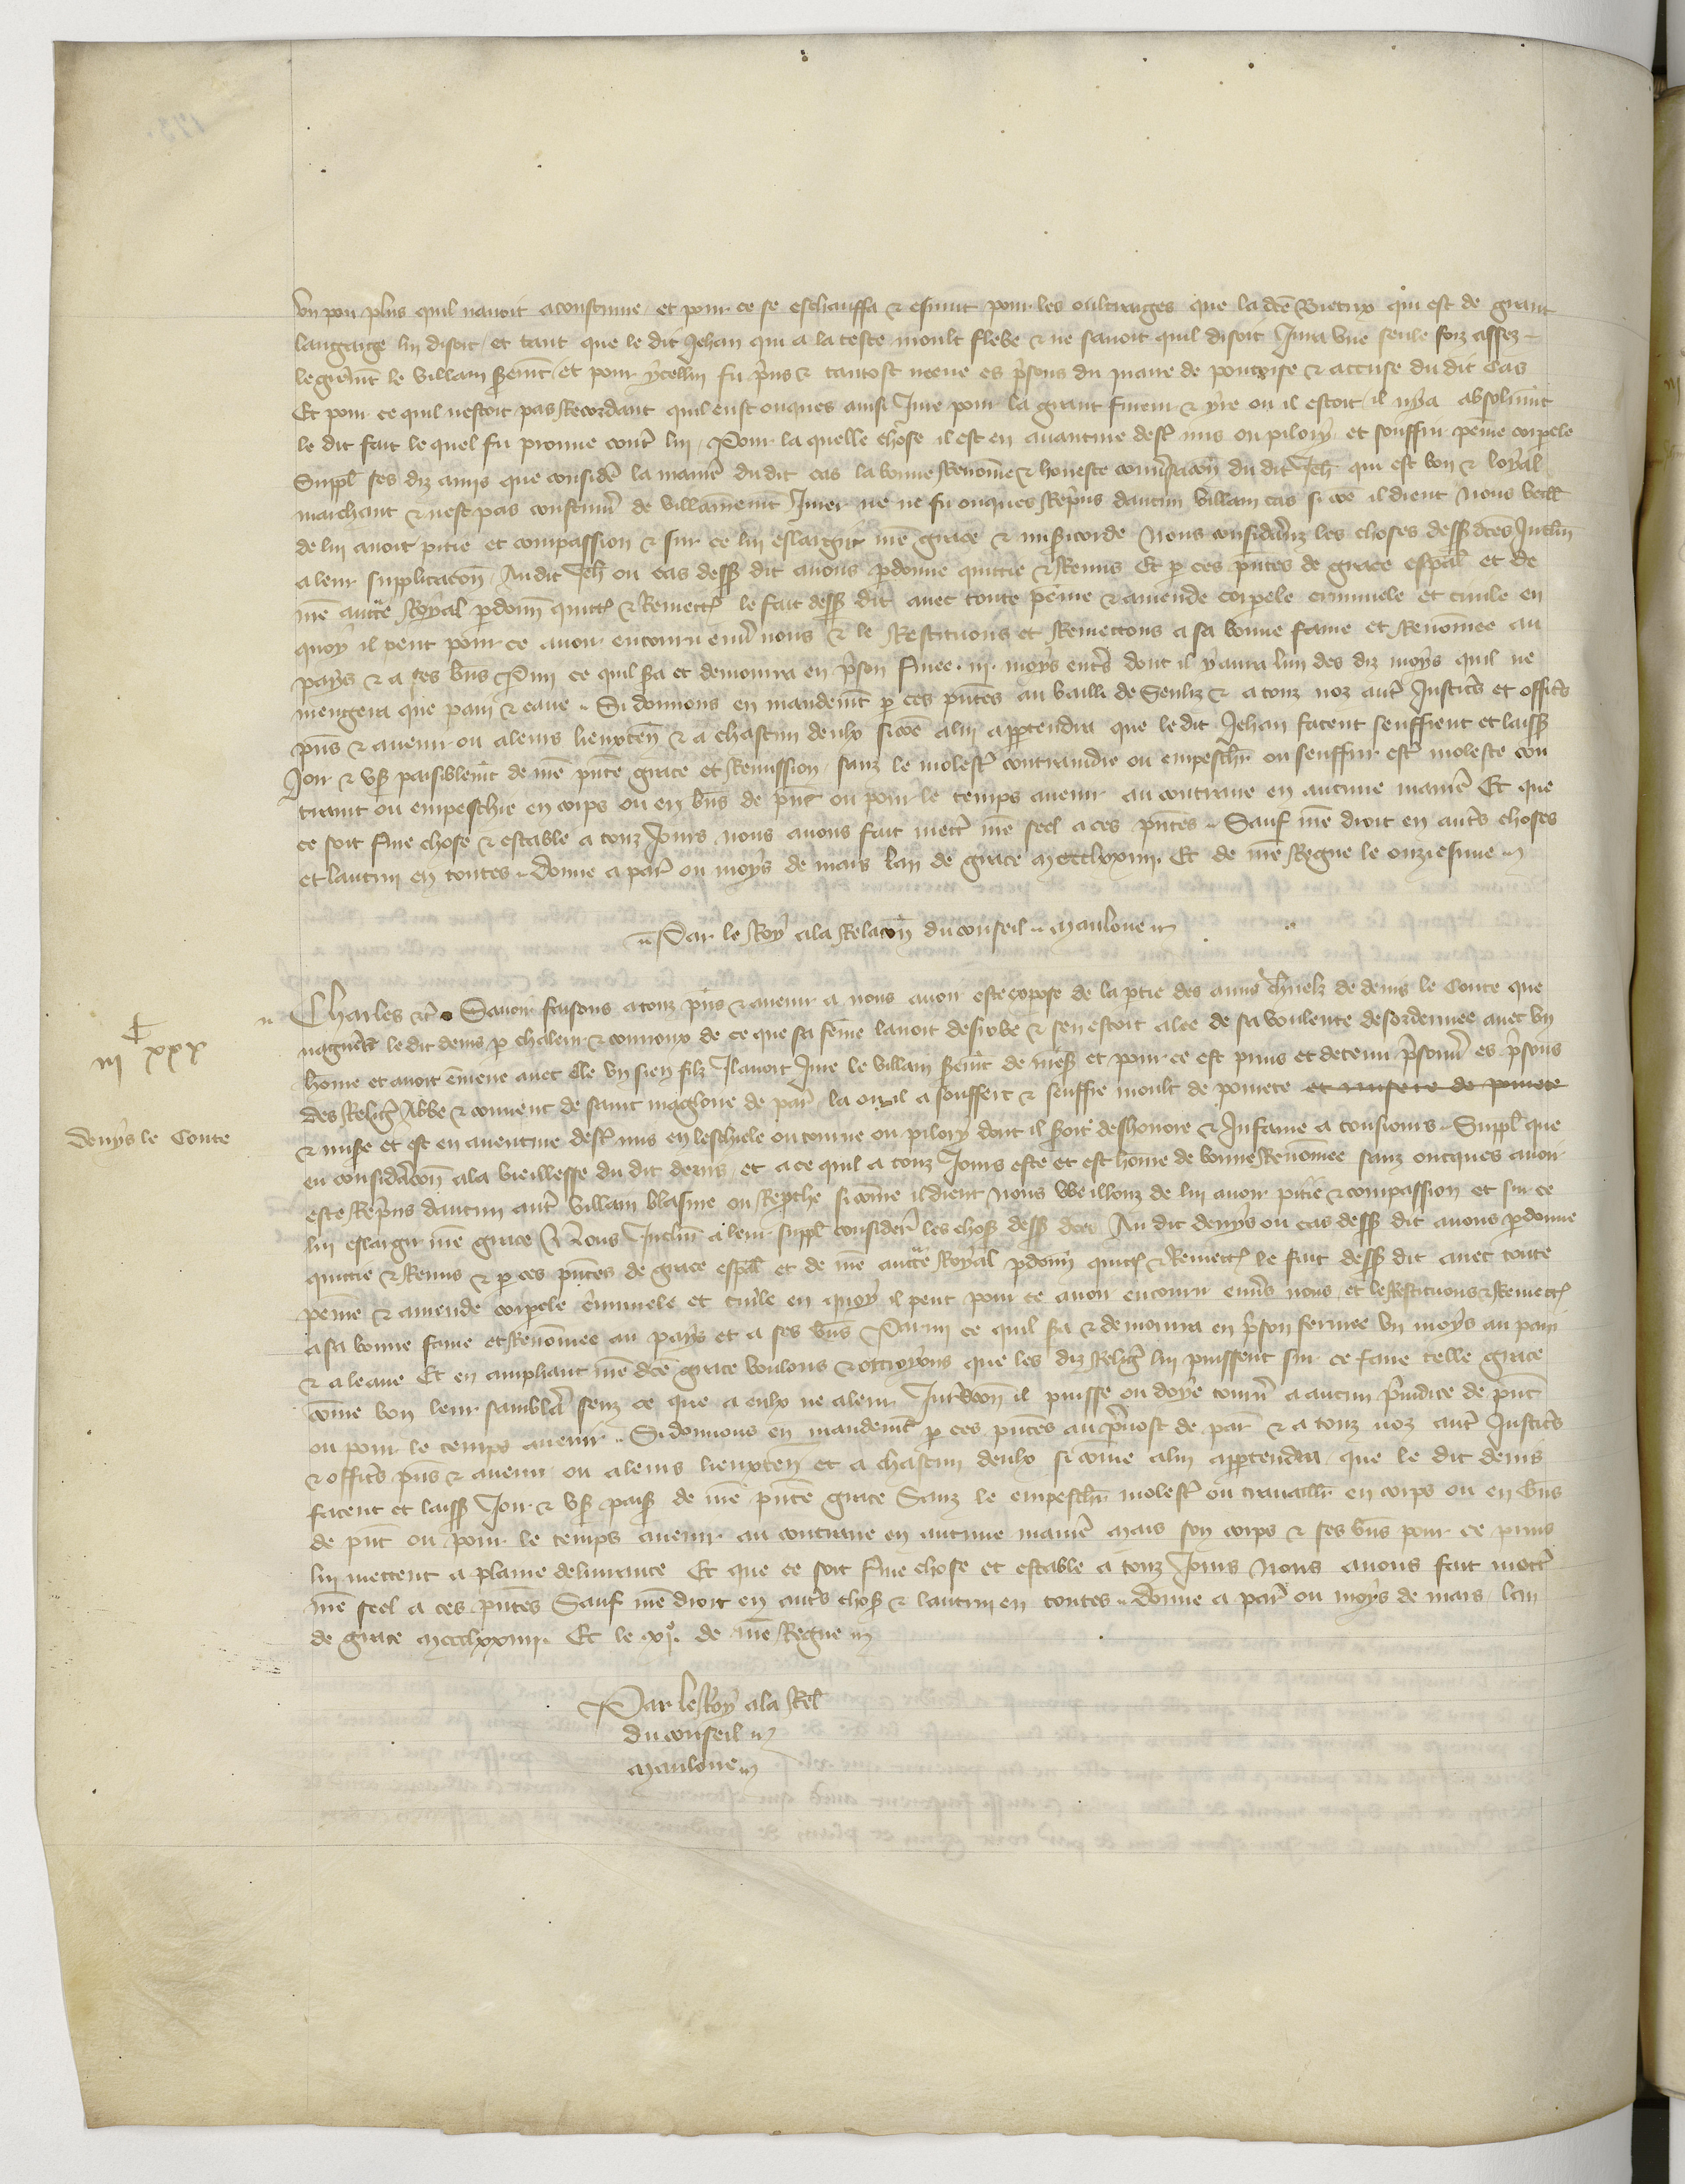 un pou plus quil nauoit acoustume et pour ce se eschauffa & esmut pour les oultraiges que la dce Bietrix qui est de grant
langaige lui disoit et tant que le dit Jehan qui a la teste moult flebe & ne sauoit quil disoit Jura une seule foiz assez
legierement le villain serement et pour ycellui fu prins & tantost mene es prisons du maire de pontoise & accuse du dit cas
Et pour ce quil nestoit pas Recordant quil eust onques ainsi Jure pour la grant fureur & yre ou il estoit il nya absolument
le dit fait le quel fu prouue contre lui Pour la quelle chose il est en auanture destre mis ou pilory et souffrir peine corpele
Suppl ses diz amis que consideré la maniere du dit cas la bonne Renomee & honeste conuersacon du dit Jeh qui est bon & loyal
marchant & nest pas coustumier de villainement Jurer ne ne fu onques Reprins daucun villain cas si coe il dient Nous veull
de lui auoir pitie et compassion & sur ce lui eslargir nre grace & misericorde Nous considerenz les choses dessus dces Inclin
a leur supplicacon Au dit Jeh ou cas dessus dit auons pdonne quittie & Remis Et p ces pntes de grace espal et de
nre aucte Royal pdonn quitt & Remett le fait dessus dit auec toute peine & amende corpele criminele et ciuile en
quoy il peut pour ce auoir encouru enuers nous & le Restituons et Remettons a sa bonne fame et Renommee au
pays & a ses bns Parmi ce quil sera et demourra en prison fmee .iij. moys entrs dont il y aura lun des diz moys quil ne
mengera que pain & eaue Si donnons en mandemt p ces pntes au bailli de Senliz & a touz noz autr Justicrs et officrs
pns & auenir ou a leurs lieuxten & a chascun deulx sicoe a lui appartendra que le dit Jehan facent seuffrent et laissent
Joir & user paisiblemt de nre pnte grace et Remission sanz le molestr contraindre ou empeschr ou seuffrir estr moleste con
traint ou empeschie en corps ou en bns de pnt ou pour le temps auenir au contraire en aucune maniere Et que
ce soit ferme chose & estable a touz Jours nous auons fait mettr nre seel a ces pntes Sauf nre droit en autrs choses
et lautrui en toutes Donne a par ou moys de mars lan de grace mccclxxiiij. Et de nre Regne le onziesme
Par le Roy a la Relacon du conseil Mauloue
Charles &c Sauoir faisons a touz pns & auenir a nous auoir este expose de la ptie des amis chnelz de denis le Conte que
naguers le dit denis p chaleur & courroux de ce que sa feme lauoit desrobe & sen estoit alee de sa voulente desordennee auec un
home et auoit emene auec elle un sien filz Il auoit Jure le villain serment de ... et pour ce est prins et detenu prisonnier es prisons
des Religieux Abbe & couuent de saint magloire de par la ou il a souffert & seuffre moult de pourete et misere de pourete
& misere et est en auenture destr mis en leschiele ou tourne ou pilory dont il seroit deshonore & Infame a tousiours Suppl que
en consideracon a la vieillesse du dit denis et a ce quil a touz Jours este et est home de bonne Renomee sanz oncques auoir
este Reprins daucun autr villain blasme ou Reproche si come il dient Nous veillonz de lui auoir pitie & compassion et sur ce
lui eslargir nre grace Nous Inclin a leur suppl consider les choses dessus dces Au dit denys ou cas dessus dit auons pdonne
quittie & Remis & p ces pntes de grace espal et de nre aucte Royal pdonn quitt & Remett le fait dessus dit auec toute
peine & amende corpele criminele et ciuile en quoy il peut pour ce auoir encouru enuers nous et le Restituons & Remett
a sa bonne fame et Renommee au pays et a ses bns Parmi ce quil sera & demourra en prison fermee un moys au pain
& a leaue Et en ampliant nre dce grace voulons & ottroyons que les diz Religieux lui puissent sur ce faire telle grace
come bon leur semblera senz ce que a eulx ne a leur Jurisdicon il puisse ou doye tourner a aucun preiudice de pnt
ou pour le temps auenir Si donnons en mandemt p ces pntes au preuost de par & a touz noz autr Justicrs
& officrs pns & auenir ou a leurs lieuxten et a chascun deulx si come a lui appartendra que le dit denis
facent et laissent Joir & user paisiblement de nre pnte grace Sanz le empeschr molestr ou trauaillr en corps ou en bns
de pnt ou pour le temps auenir au contraire en aucune maniere Mais son corps & ses bns pour ce prins
lui mettent a plaine deliurance Et que ce soit ferme chose et estable a touz Jours Nous auons fait mettr
nre seel a ces pntes Sauf nre droit en autrs choses & lautrui en toutes Donne a par ou moys de mars lan
de grace mccclxxiiij. Et le xje. de nre Regne
Par le Roy a la Rel
du conseil
Mauloue
iij C xxx
denys le Conte